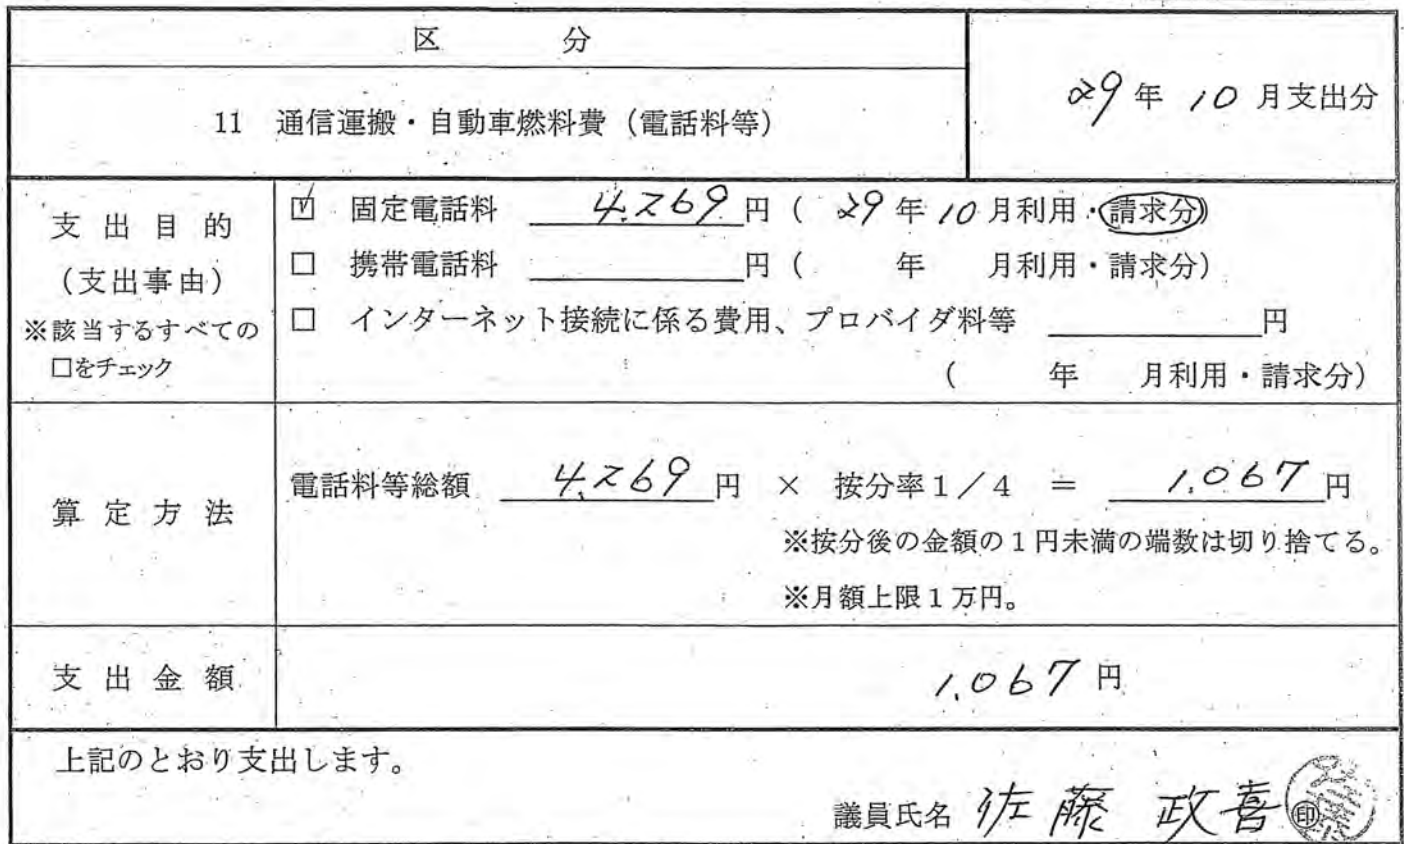 区 分
29年10月支出分
11 通信運搬・自動車燃料費（電話料等）
支出目的
（支出事由）
※該当するすべての
□をチェック
☑ 固定電話料 4,269円（29年10月利用・請求分）
□ 携帯電話料 円（ 年 月利用・請求分）
□ インターネット接続に係る費用、プロバイダ料等 円
（ 年 月利用・請求分）
算定方法
電話料等総額 4,269円 × 按分率1／4 ＝ 1,067円
※按分後の金額の1円未満の端数は切り捨てる。
※月額上限1万円。
支出金額
1,067円
上記のとおり支出します。
議員氏名 佐藤 政喜 ㊞